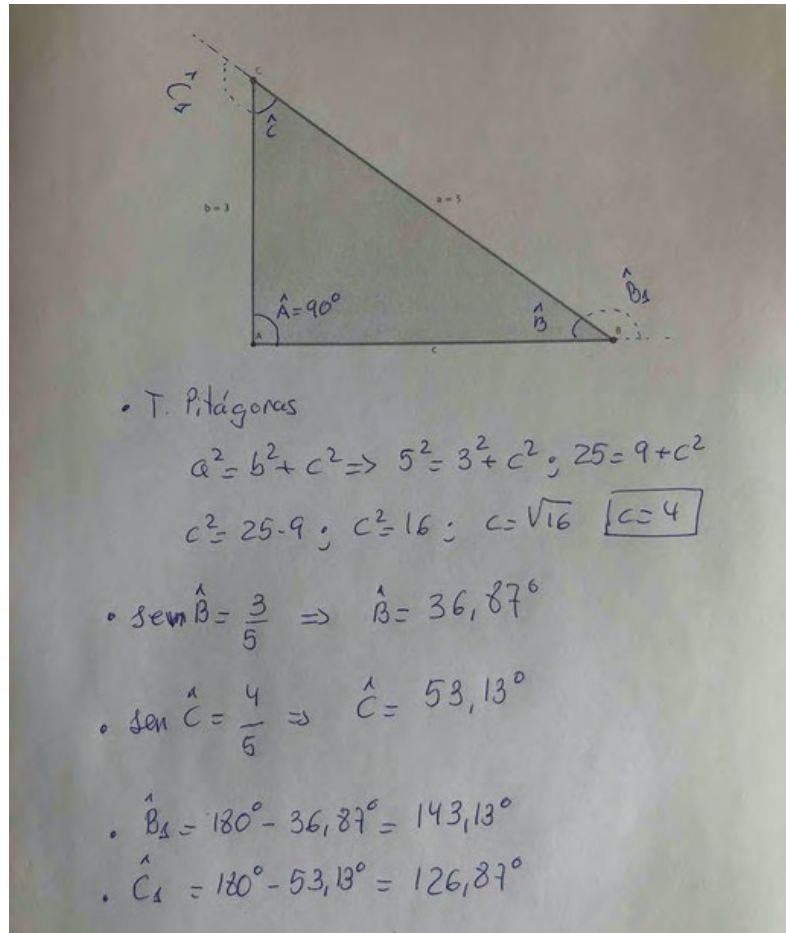 C
Ĉ₁
Ĉ
b = 3
a = 5
B̂₁
Â = 90°
B̂
A
B
c
• T. Pitágoras
a² = b² + c² => 5² = 3² + c² ; 25 = 9 + c²
c² = 25 - 9 ; c² = 16 ; c = √16 c = 4
• sen B̂ = 3/5 => B̂ = 36,87°
• sen Ĉ = 4/5 => Ĉ = 53,13°
• B̂₁ = 180° - 36,87° = 143,13°
• Ĉ₁ = 180° - 53,13° = 126,87°